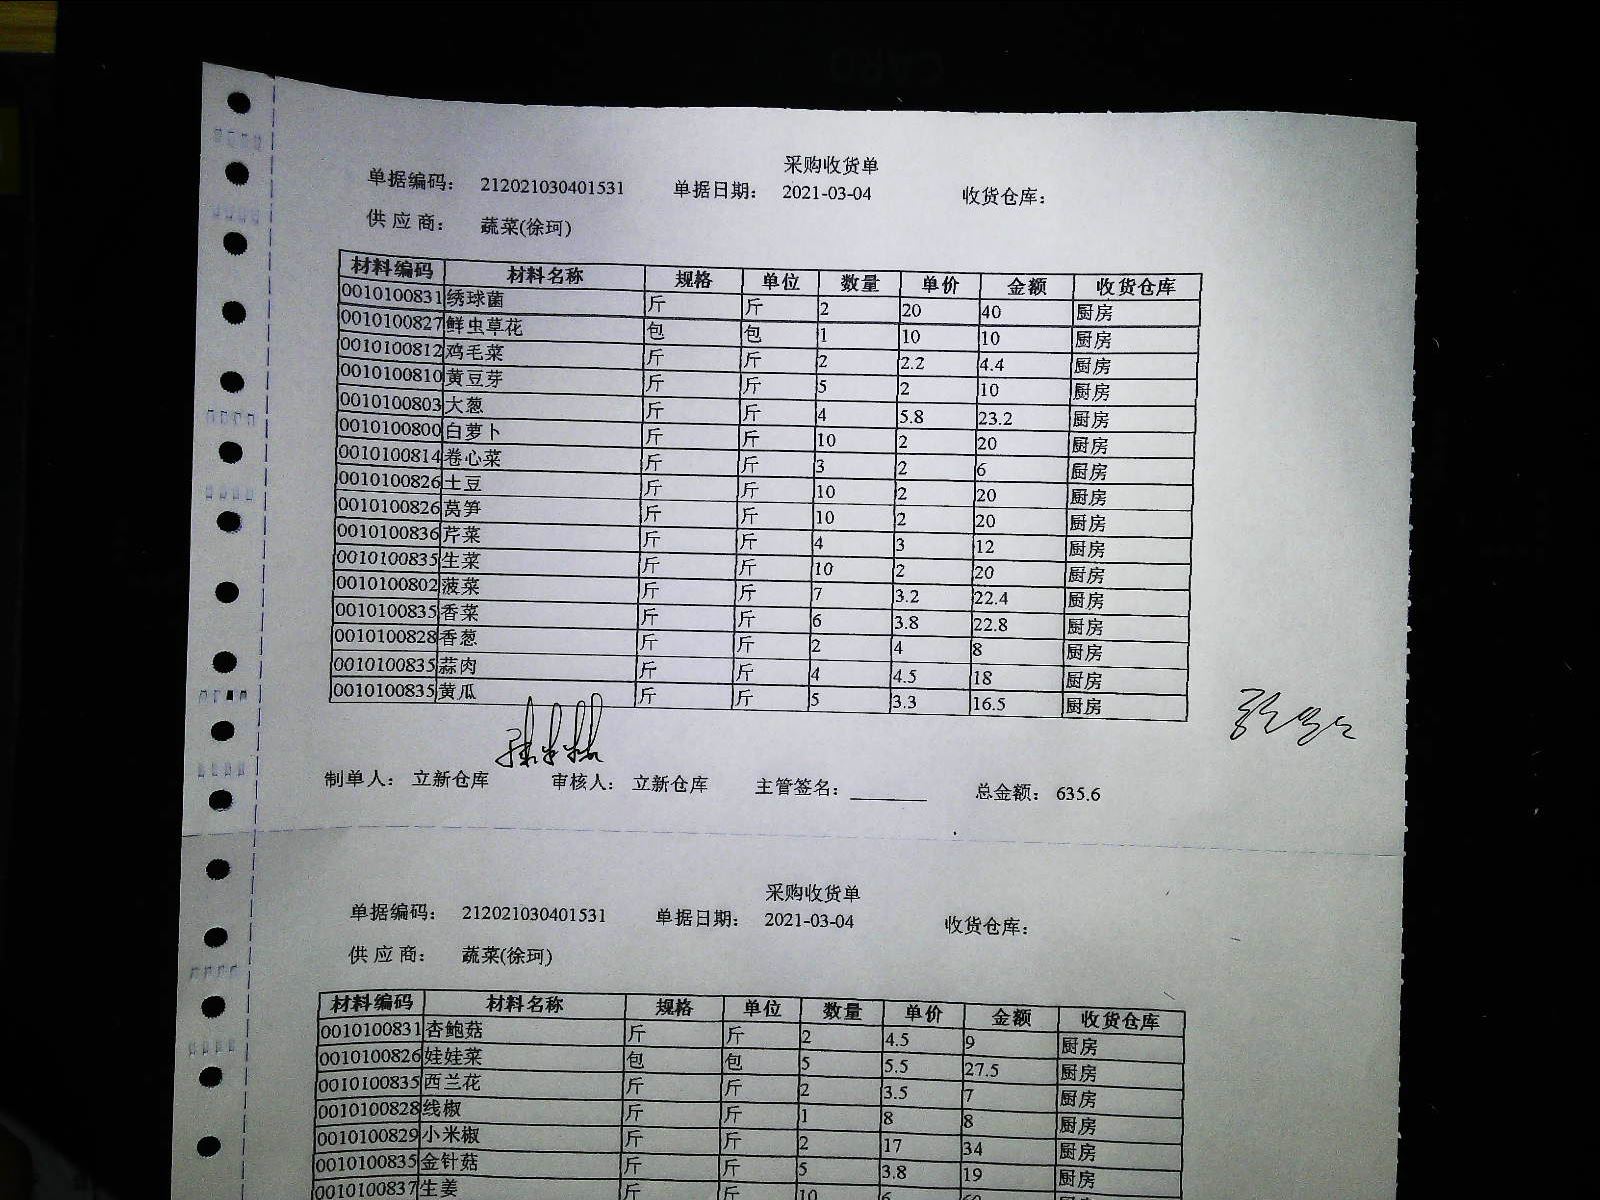 采购收货单
单据编码： 212021030401531 单据日期： 2021-03-04 收货仓库：
供 应 商： 蔬菜(徐珂)
材料编码 材料名称 规格 单位 数量 单价 金额 收货仓库
0010100831 绣球菌 斤 斤 2 20 40 厨房
0010100827 鲜虫草花 包 包 1 10 10 厨房
0010100812 鸡毛菜 斤 斤 2 2.2 4.4 厨房
0010100810 黄豆芽 斤 斤 5 2 10 厨房
0010100803 大葱 斤 斤 4 5.8 23.2 厨房
0010100800 白萝卜 斤 斤 10 2 20 厨房
0010100814 卷心菜 斤 斤 3 2 6 厨房
0010100826 土豆 斤 斤 10 2 20 厨房
0010100826 莴笋 斤 斤 10 2 20 厨房
0010100836 芹菜 斤 斤 4 3 12 厨房
0010100835 生菜 斤 斤 10 2 20 厨房
0010100802 菠菜 斤 斤 7 3.2 22.4 厨房
0010100835 香菜 斤 斤 6 3.8 22.8 厨房
0010100828 香葱 斤 斤 2 4 8 厨房
0010100835 蒜肉 斤 斤 4 4.5 18 厨房
0010100835 黄瓜 斤 斤 5 3.3 16.5 厨房
制单人： 立新仓库 审核人： 立新仓库 主管签名：________ 总金额： 635.6
采购收货单
单据编码： 212021030401531 单据日期： 2021-03-04 收货仓库：
供 应 商： 蔬菜(徐珂)
材料编码 材料名称 规格 单位 数量 单价 金额 收货仓库
0010100831 杏鲍菇 斤 斤 2 4.5 9 厨房
0010100826 娃娃菜 包 包 5 5.5 27.5 厨房
0010100835 西兰花 斤 斤 2 3.5 7 厨房
0010100828 线椒 斤 斤 1 8 8 厨房
0010100829 小米椒 斤 斤 2 17 34 厨房
0010100835 金针菇 斤 斤 5 3.8 19 厨房
0010100837 生姜 斤 斤 10 6 60 厨房